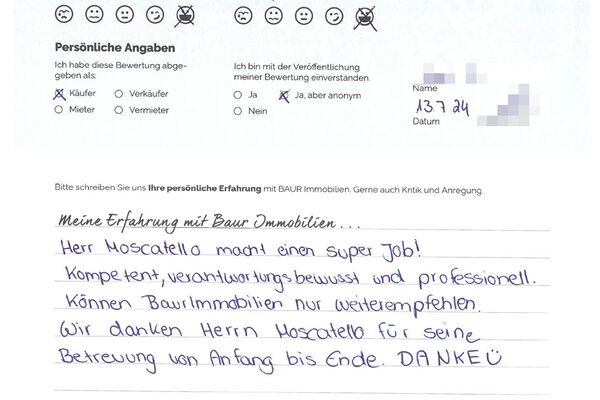 Persönliche Angaben
Ich habe diese Bewertung abge-
geben als:
Käufer
Verkäufer
Mieter
Vermieter
Ich bin mit der Veröffentlichung
meiner Bewertung einverstanden.
Ja
Ja, aber anonym
Nein
Name
13.7.24
Datum
Bitte schreiben Sie uns Ihre persönliche Erfahrung mit BAUR Immobilien. Gerne auch Kritik und Anregung.
Meine Erfahrung mit Baur Immobilien...
Herr Moscatello macht einen super Job!
Kompetent, verantwortungsbewusst und professionell.
Können BaurImmobilien nur weiterempfehlen.
Wir danken Herrn Moscatello für seine
Betreuung von Anfang bis Ende. DANKE Ü